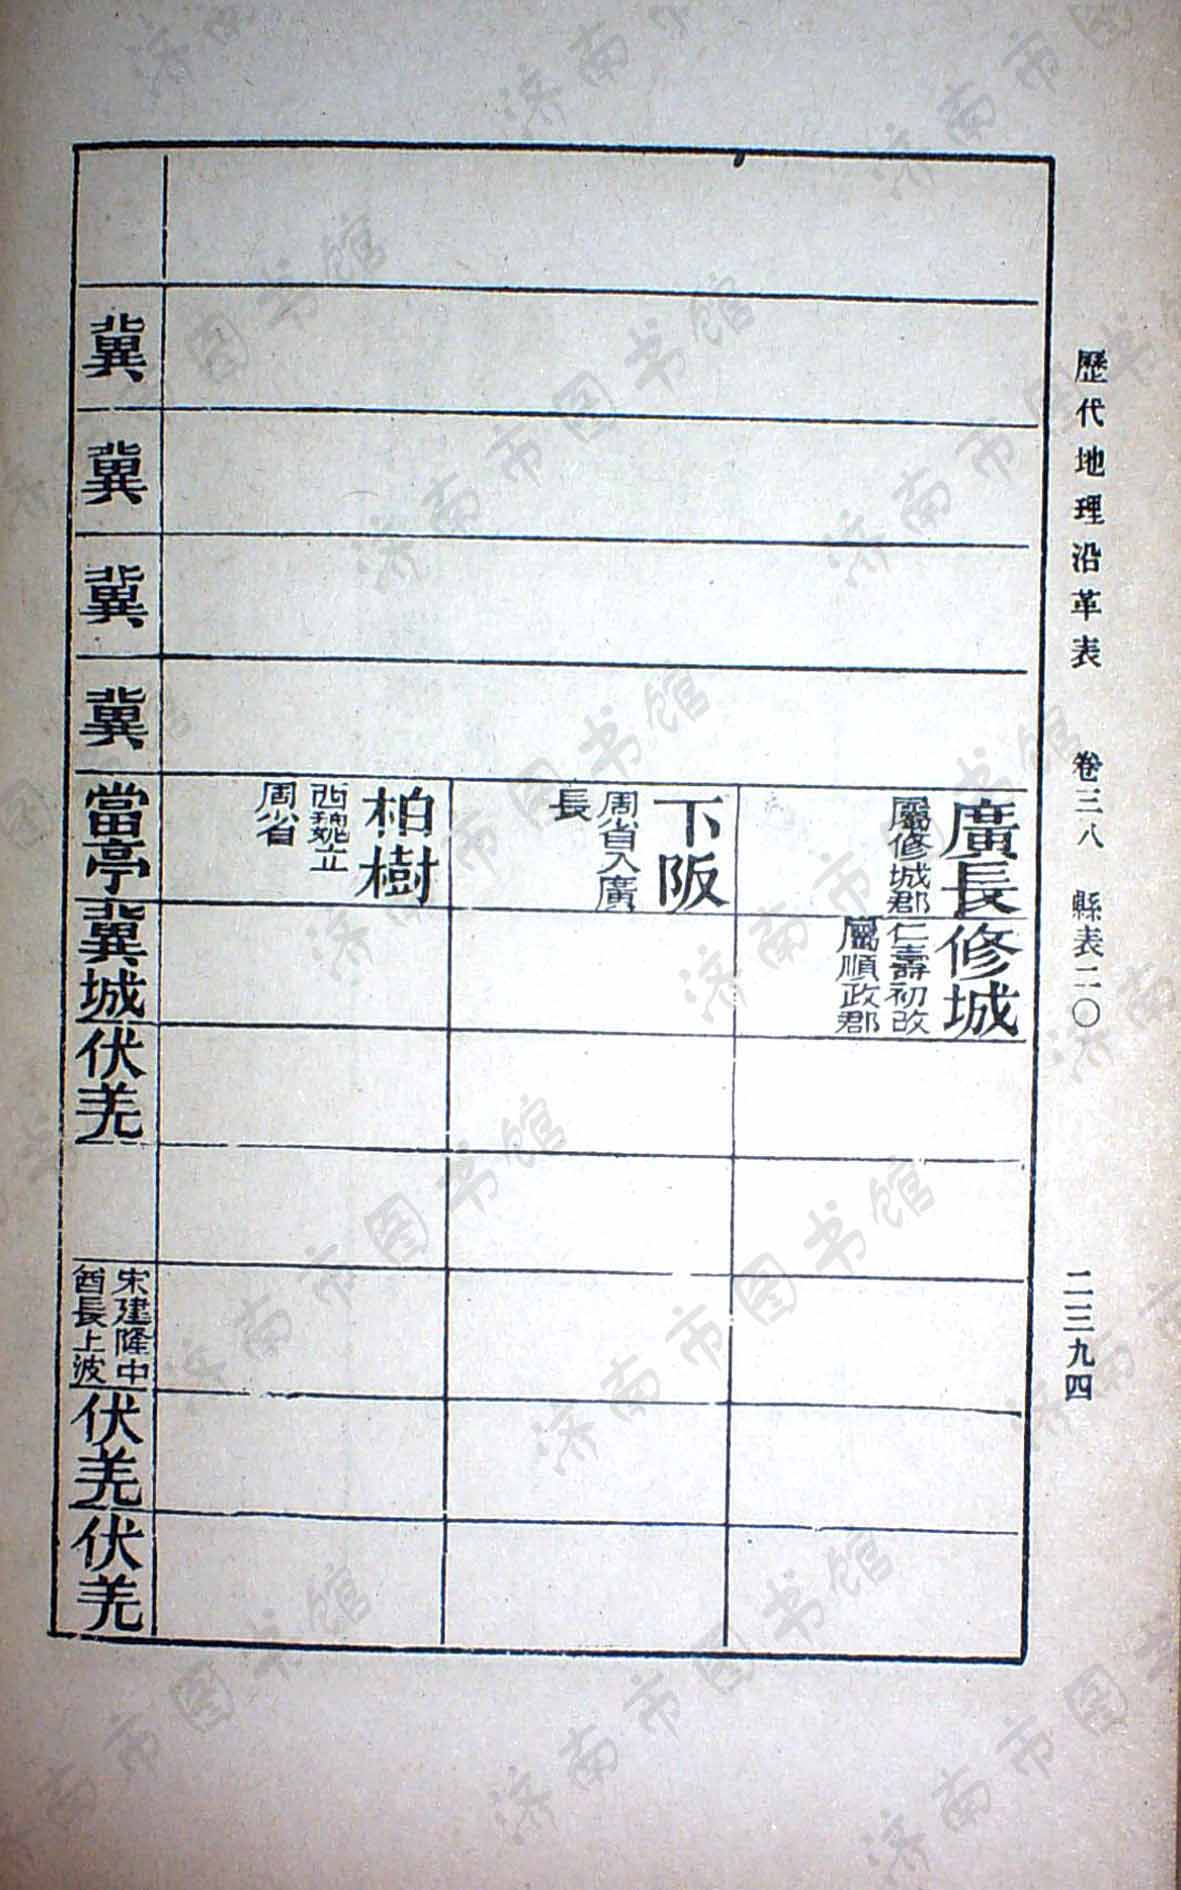 歷代地理沿革表 卷三八 縣表二〇 二三九四
廣長
屬修城郡
修城
仁壽初改
屬順政郡
下阪
周省入廣
長
柏樹
西魏立
周省
冀
冀
冀
冀
當亭
冀城
伏羌
宋建隆中
酋長上波
伏羌
伏羌
济南市图书馆